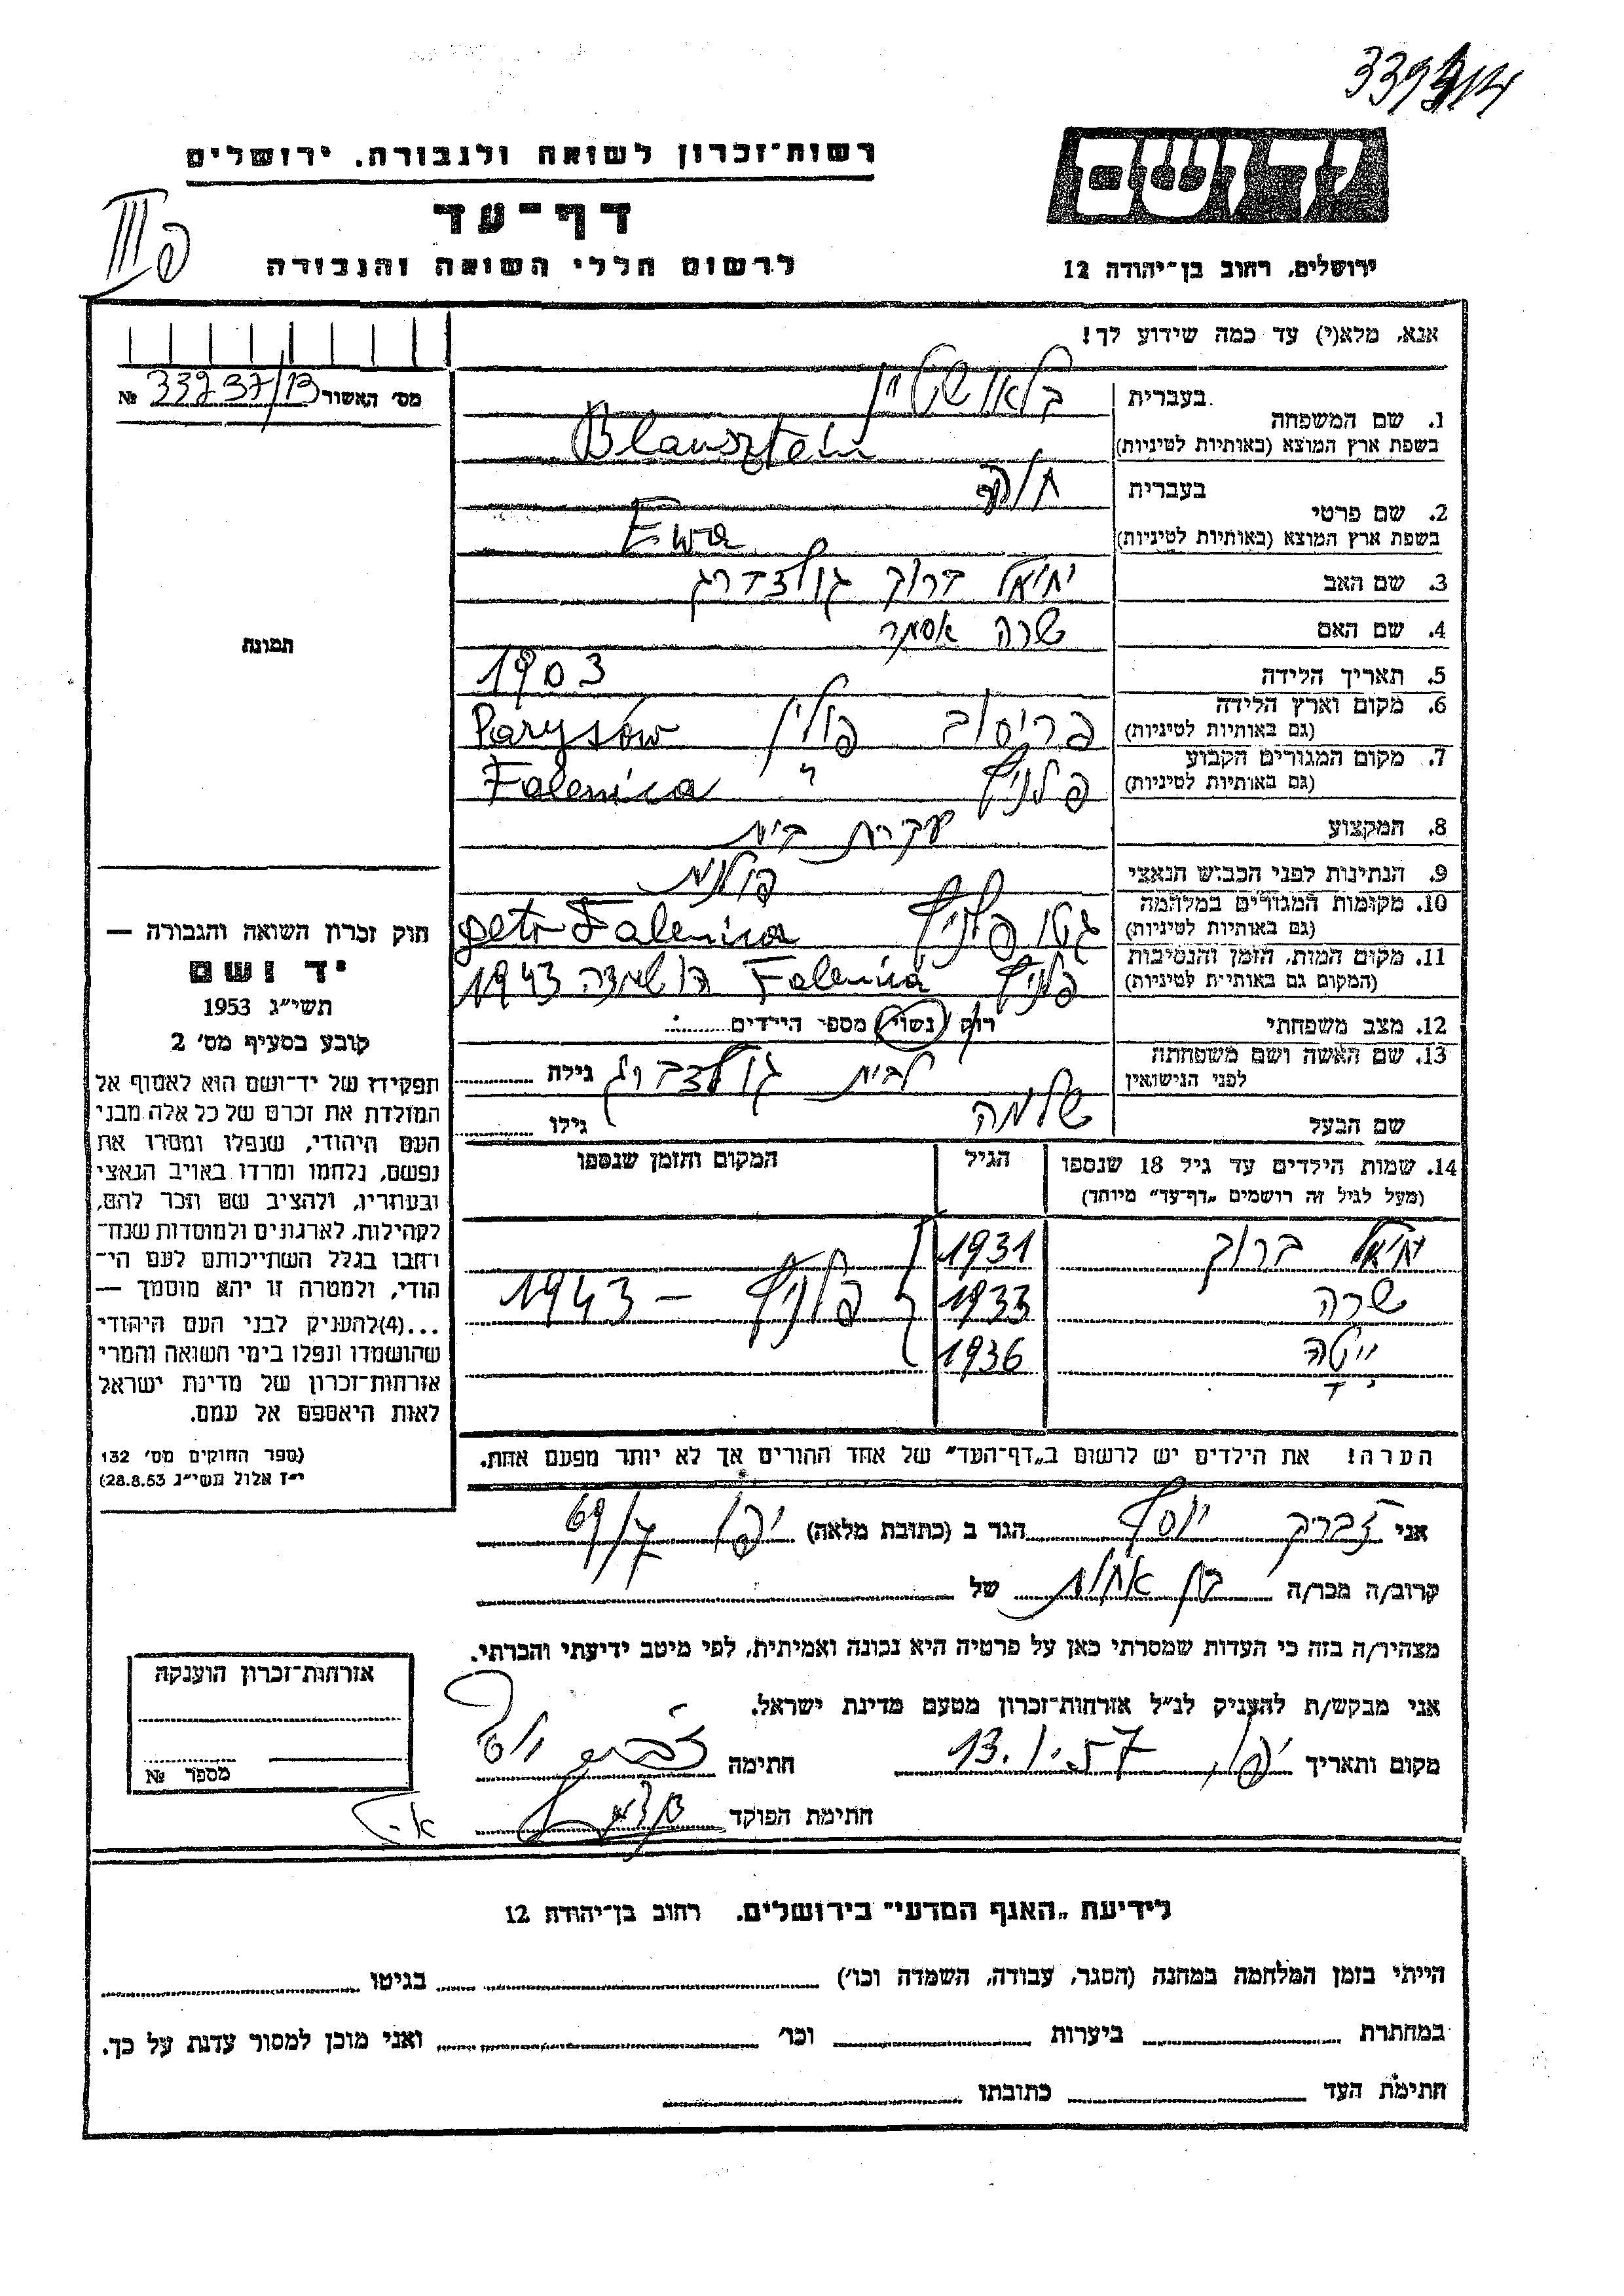 יד ושם
ירושלים, רחוב בן-יהודה 12
רשות-זכרון לשואה ולגבורה, ירושלים
דף-עד
לרשום חללי השואה והגבורה
אנא, מלא(י) עד כמה שידוע לך!
מס' האשור № 33937/13
1. שם המשפחה
בעברית בלאושטיין
בשפת ארץ המוצא (באותיות לטיניות) Blausztein
2. שם פרטי
בעברית חוה
בשפת ארץ המוצא (באותיות לטיניות) Ewa
3. שם האב יחיאל ברוך גולדברג
4. שם האם שרה אסתר
5. תאריך הלידה 1903
6. מקום וארץ הלידה פריסוב פולין Parysów
(גם באותיות לטיניות)
7. מקום המגורים הקבוע פלניץ " Falenica
(גם באותיות לטיניות)
8. המקצוע עקרת בית
9. הנתינות לפני הכבוש הנאצי פולנית
10. מקומות המגורים במלחמה גטו פלניץ getto Falenica
(גם באותיות לטיניות)
11. מקום המות, הזמן והנסיבות פלניץ Falenica 1943
(המקום גם באותיות לטיניות)
12. מצב משפחתי רווק נשוי מספר הילדים
13. שם האשה ושם משפחתה לבית גולדברג גילה
לפני הנישואין
שם הבעל שלמה גילו
14. שמות הילדים עד גיל 18 שנספו הגיל המקום והזמן שנספו
(מעל לגיל זה רושמים "דף-עד" מיוחד)
יחיאל ברוך 1931
שרה 1933 פלניץ - 1943
1936
הערה! את הילדים יש לרשום ב"דף-העד" של אחד ההורים אך לא יותר מפעם אחת.
תמונה
חוק זכרון השואה והגבורה —
יד ושם
תשי"ג 1953
קובע בסעיף מס' 2
תפקידו של יד-ושם הוא לאסוף אל
המולדת את זכרם של כל אלה מבני
העם היהודי, שנפלו ומסרו את
נפשם, נלחמו ומרדו באויב הנאצי
ובעוזריו, ולהציב שם וזכר להם,
לקהילות, לארגונים ולמוסדות שנח-
רבו בגלל השתייכותם לעם הי-
הודי, ולמטרה זו יהא מוסמך —
...(4) להעניק לבני העם היהודי
שהושמדו ונפלו בימי השואה והמרי
אזרחות-זכרון של מדינת ישראל
לאות היאספם אל עמם.
(ספר החוקים מס' 132
י"ז אלול תשי"ג 28.8.53)
אני יוסף הגר ב (כתובת מלאה) יפו 69/7
קרוב/ה מכר/ה בן אחות של
מצהיר/ה בזה כי העדות שמסרתי כאן על פרטיה היא נכונה ואמיתית, לפי מיטב ידיעתי והכרתי.
אני מבקש/ת להעניק לנ"ל אזרחות-זכרון מטעם מדינת ישראל.
מקום ותאריך יפו, 13.1.57 חתימה
חתימת הפוקד
אזרחות-זכרון הוענקה
מספר №
לידיעת "האגף המדעי" בירושלים, רחוב בן-יהודה 12
הייתי בזמן המלחמה במחנה (הסגר, עבודה, השמדה וכו') בגיטו
במחתרת ביערות וכו' ואני מוכן למסור עדות על כך.
חתימת העד כתובתו